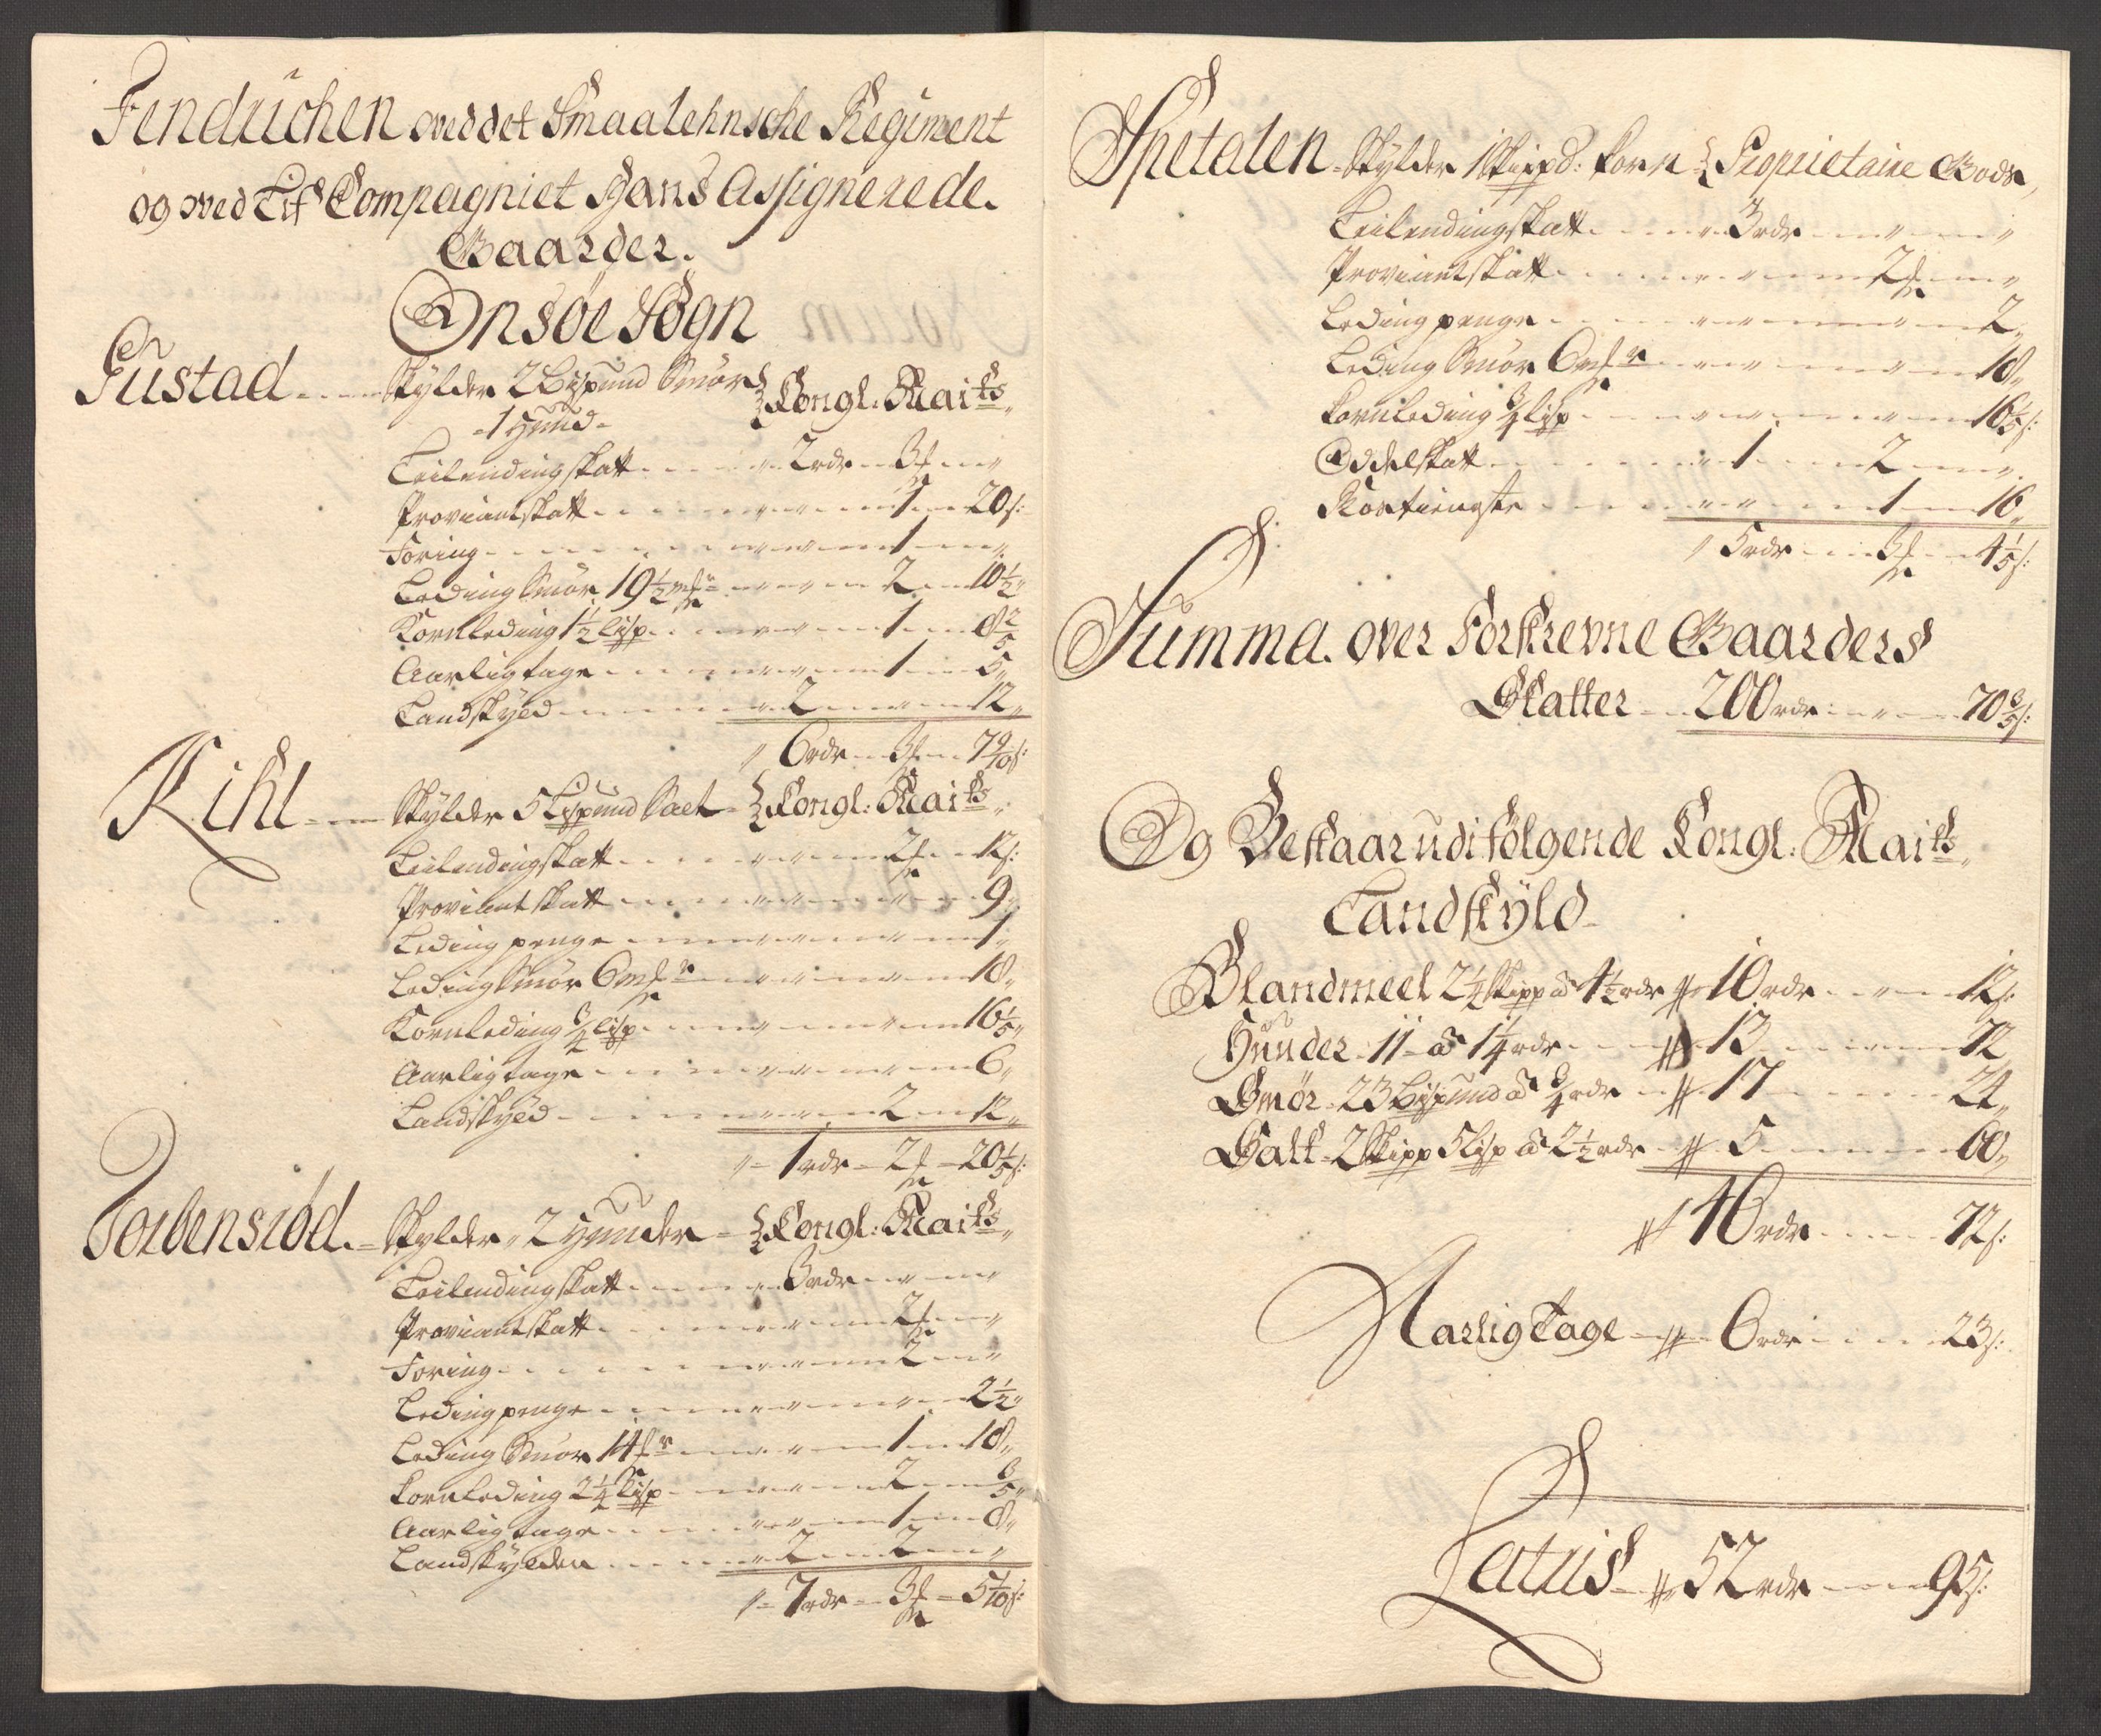 Fendrichen ved det Smaalehnsche Regiment
og ved Lif Compagniet Hans Assignerede
Gaarder.
Onsøe Sogn
Gustad Skylder 2 Bispund Smør Kongl: Maits
1 Hund
Leilendingskatt 2 rdr 3
Proviantskatt 1 20 s:
Foring 1
Leding Smør 19 1/2 2 10 1/2
Kornleding 1 1/2 lisp 1 8 2/5
Aarligtage 1 5
Landskyld 2 12
6 rdr 3 7 9/10 s:
Kihl Skylder 5 Lispund Salt Kongl: Maits
Leilendingskatt 2 12 s:
Proviantskatt 9
Ledingpenge 1
Leding Smør 6 18
Kornleding 3/4 lisp 16 1/5
Aarligtage 6
Landskyld 2 12
1 rdr 2 20 1/5 s:
Torbensrød Skylder 2 Hunder Kongl: Maits
Leilendingskatt 3 rdr
Proviantskatt 2
Foring 2
Ledingpenge 2 1/2
Leding Smør 14 1 18
Kornleding 2 1/4 Lisp 2 3/5
Aarligtage 1 8
Landskylden 2 2
7 rdr 3 5 1/10 s:
Spetalen Skylder 1 Skippd: Korn Proprietaire Gods
Leilendingskatt 3 rdr
Proviantskatt 2
Ledingpenge 2
Leding Smør 6 18
Kornleding 3/4 lisp 16 1/5 s:
Oddelskatt 1 2
Rostienste 1 16
5 rdr 3 4 1/5 s:
Summa over Forskrevne Gaarders
Skatter 200 rdr 70 3/5 s:
Og Bestaar udi følgende Kongl: Maits
Landskyld
Blandmeel 2 1/4 Skipp a 4 1/2 rdr 10 rdr 12 s:
Hunder 11 a 1 1/4 rdr 13 72
Smør 23 Bispund a 3/4 rdr 17 24
Salt 2 Skipp 5 Lisp a 2 1/2 rdr 5 60
46 rdr 72 s:
Aarligtage 6 rdr 23 s:
Latus 52 rdr 95 s: